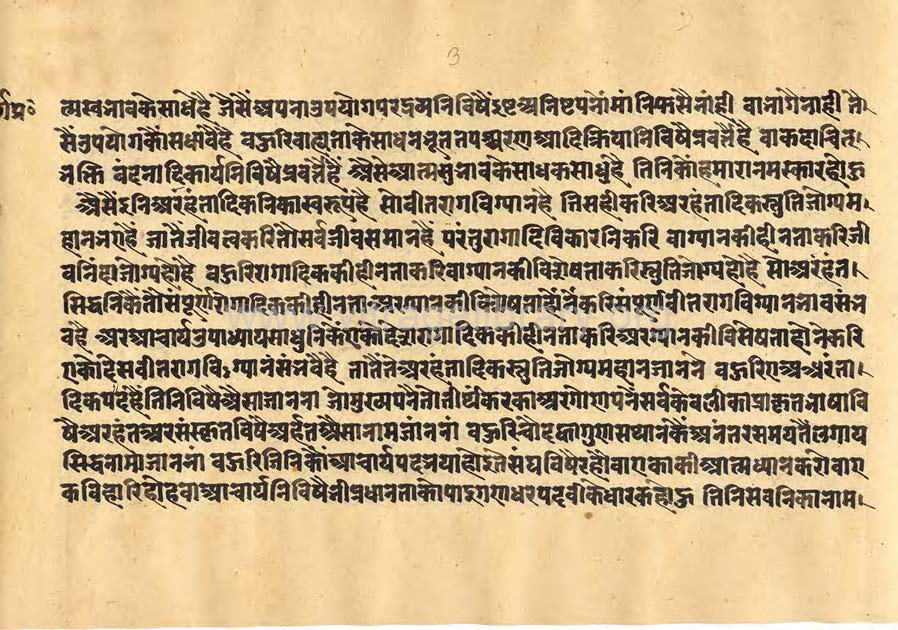 3
र्गप्र॰
त्मस्वभावकेसाधेहै जैसेंअपनाउपयोगपरद्रव्यनिविषैंइष्टअनिष्टपनोंमांनिफसैनांही वाभागैनाही जै।
सैंउपयोगकौंसधावैहै बहुरिवाह्यताकेसाधनभूततपश्चरणआदिक्रियानिविषैप्रवर्त्तैहै वाकदाचित्।
भक्ति वंदनादिकार्यनिविषैप्रवर्त्तैहैं अैसेआत्मसुभावकेसाधकसाधुहै तिनिकौंहमारानमस्कारहोऊ
अैसैंइनिअरहंतादिकनिकास्वरूपहै सोवीतरागविग्यानहै तिसहीकरिअरहंतादिकस्तुतिजोग्यम।
हानभएहै जातैजीवत्वकरितोसर्वजीवसमानहै परंतुरागादिविकारनिकरि वाग्यानकीहीनताकरिजी
वनिंदाजोग्यहोहै बहुरिरागादिककीहीनताकरिवाग्यानकीविशेषताकरिस्तुतिजोग्यहोहै सोअरहंत।
सिद्धनिकैतौसंपूर्णरागादिककीहीनताअरग्यानकीविशेषताहोंनेंकरिसंपूर्णवीतरागविग्यानभावसंभ
वैहै अरआचार्यउपाध्यायसाधुनिकैएकोदेशरागादिककीहीनताकरिअरग्यानकीविसेषताहोनेकरि
एकोदेसवीतरागविग्यानसंभवैहै तातैंतेअरहंतादिकस्तुतिजोग्यमहानजानने बहुरिएअरंता।
दिकपदहैतिनिविषैअैसाजानना जोमुख्यपनैतोतीर्थंकरकाअरगोणपनैसर्वकेवलीकाप्राकृतभाषावि
षैअरहंतअरसंस्कृतविषैअर्हतअैसानामजाननां बहुरिचौदहवागुणसथानकैअनंतरसमयतैंलगाय
सिद्धनामजाननां बहुरिजिनिकौंआचार्यपदभयाहोइतेसंघविषैरहौवाएकाकीआत्मध्यानकरोवाए
कविहारिहोहुवाआचार्यनिविषैभीप्रधानताकोपाइगणधरपदवीकेधारकहोऊ तिनिसबनिकानाम।